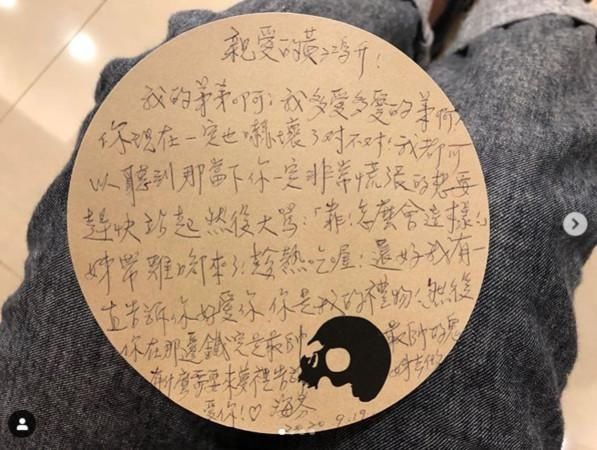 親愛的黃鴻升!
我的弟弟啊!我多愛多愛的弟啊!
你現在一定也嚇壞了对不对!我都可
以聽到那當下你一定非常慌張的想要
趕快站起然後大罵:「靠!怎麼會這樣!」
姊帶雞腳來了!趁熱吃喔!還好我有一
直告訴你好愛你 你是我的禮物!然後
你在那邊鐵定是最帥 最帥的鬼
有什麼需要來夢裡告訴
愛你!♡ 海芬
2020.9.19